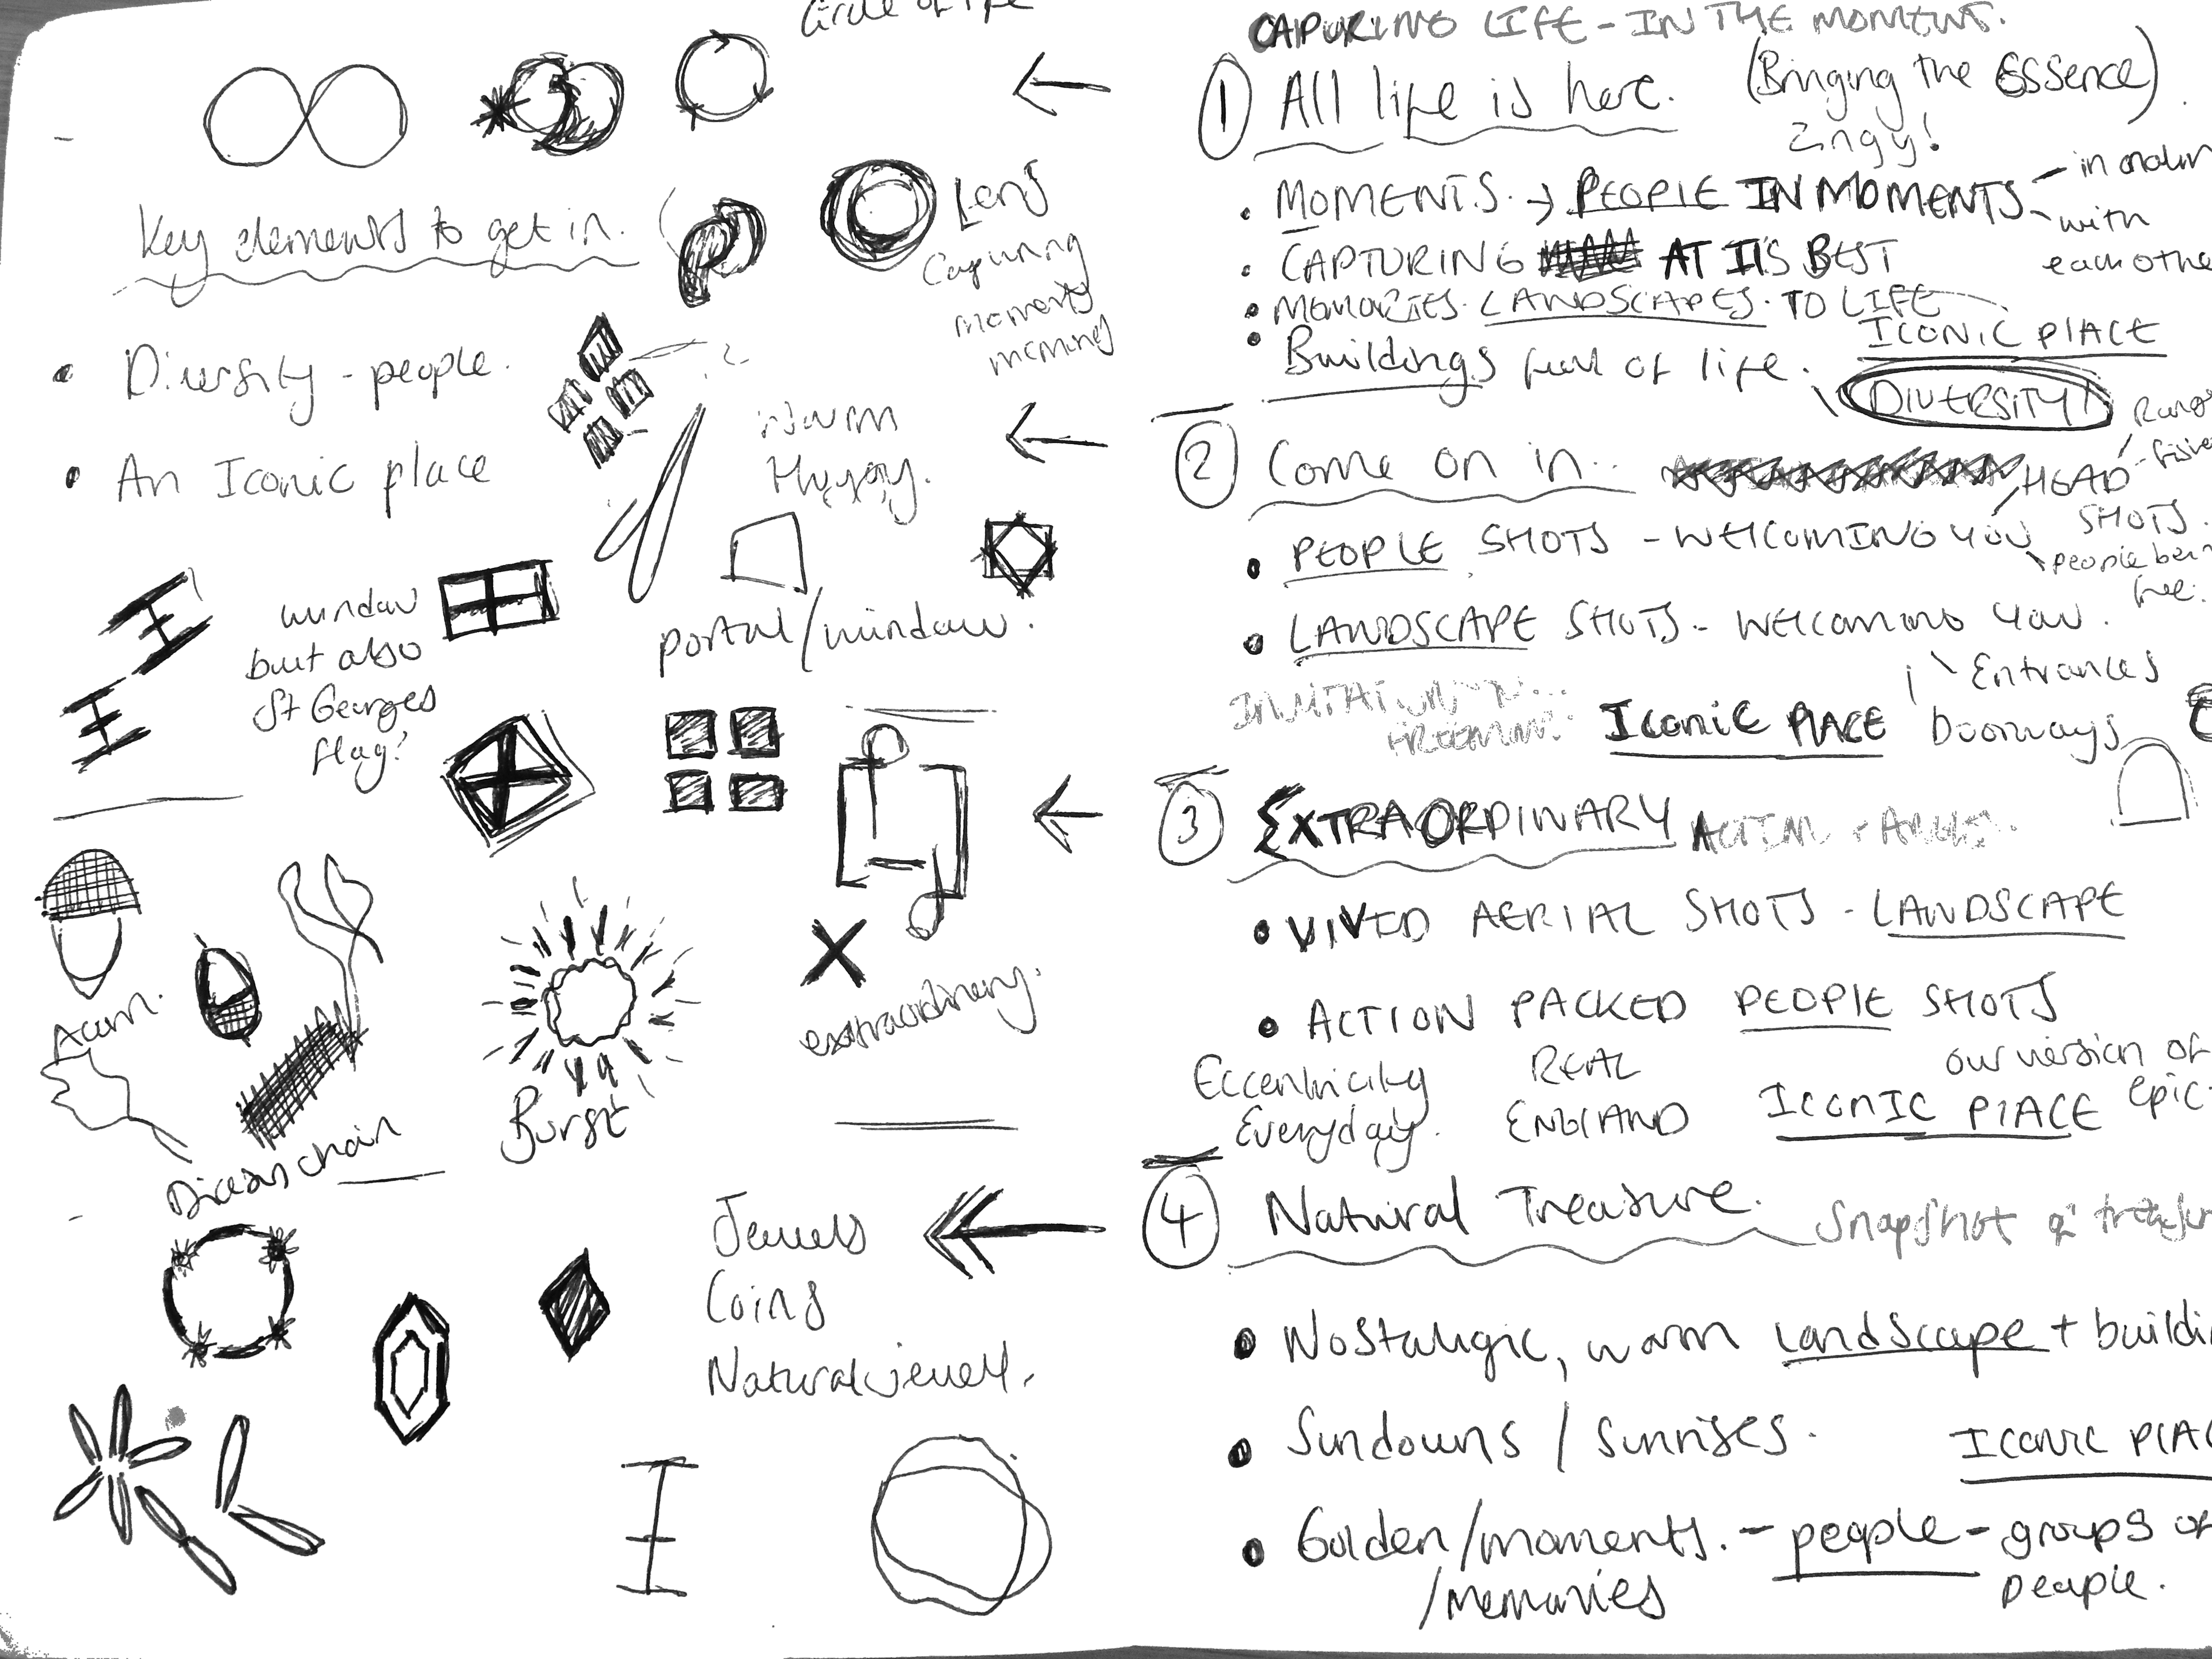 Circle of life
Key elements to get in.
Lens
Capturing
moments
Diversity - people.
An Iconic place
portal/window.
window
but also
St Georges
flag?
Acorn.
Burst
extraordinary.
chain
Jewels
Coins
Natural jewell.
CAPURING LIFE - IN THE MOMENT.
1 All life is here. (Bringing the ESSence)
Zingy!
MOMENTS. → PEOPLE IN MOMENTS
with
each othe
CAPTURING AT ITS BEST
MEMORIES. LANDSCAPES. TO LIFE
ICONIC PLACE
Buildings full of life.
DIVERSITY!
2 Come on in..
HEAD
SHOTS.
PEOPLE SHOTS - WELCOMING YOU
people bein
free.
LANDSCAPE SHOTS - WELCOMING YOU.
Entrances
Doorways
ICONIC PLACE
3 EXTRAORDINARY
VIVID AERIAL SHOTS - LANDSCAPE
ACTION PACKED PEOPLE SHOTS
Eccentricity
Everyday.
REAL
ENGLAND
our version of
epic
ICONIC PLACE
4 Natural Treasure.
Snapshot of
Nostalgic, warm Landscape + buildi
Sundowns / Sunrises.
ICONIC PLAC
Golden/moments. - people - groups of
/memories
people.